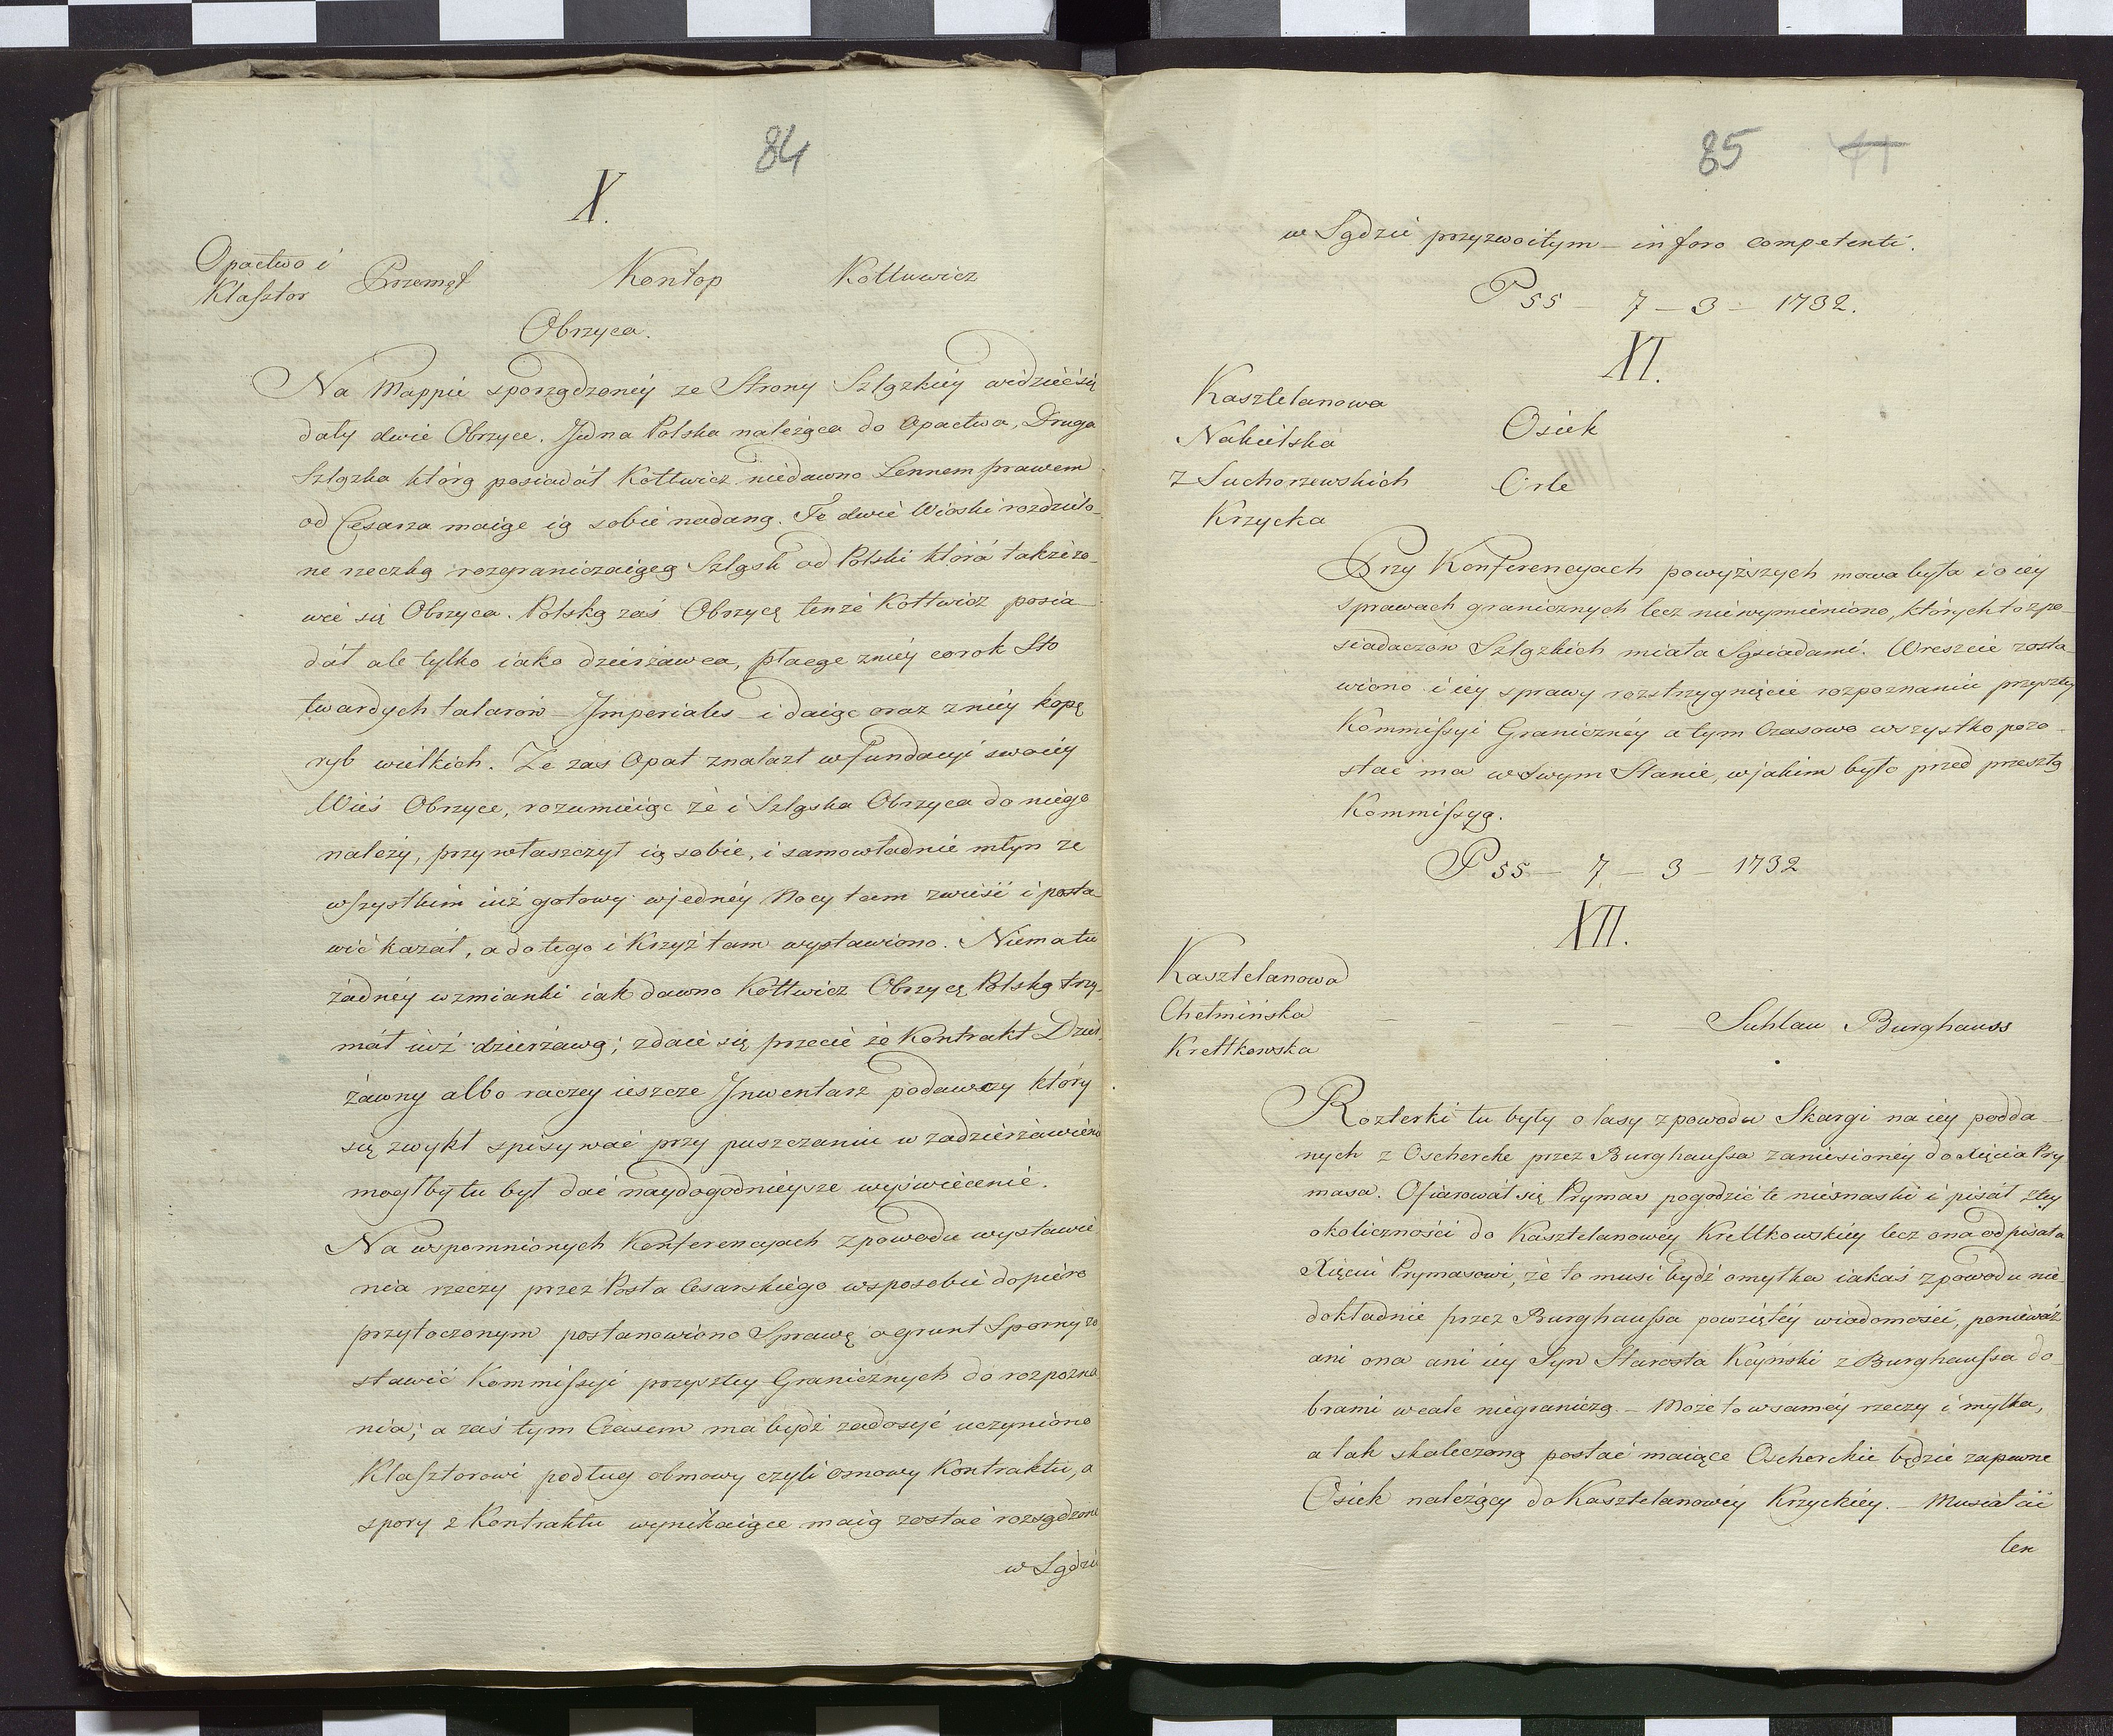 84
X.
Opactwo i
Klasztor Przemęt Kontop Kottuwicz
Obrzyca.
Na Mappie sporządzoneiy ze Strony Szlązkiéy widzieć się
dały dwie Obrzyce. Jedna Polska należąca do Opactwa, Druga
Szlązka którą posiadáł Kottwicz niedawno Lennem prawem
od Cesarza maiąc ią sobie nadaną. Te dwie Wioski rozdzielo-
ne rzeczką rozgraniczaiącą Szląsk od Polski która także zo-
wie się Obrzyca. Polską zaś Obrzycę tenże Kottwicz posia-
dáł ale tylko iako dzierżawca, płacąc zniéy corok Sto
twardych talarów – Imperiales – i daiąc oraz zniéy kopę
ryb wielkich. Ze zaś Opat znalazł w fundacyi swoiéy
Wieś Obrzyce, rozumieiąc że i Szląska Obrzyca do niego
należy, przywłaszczył ią sobie, i samowładnie młyn ze
wszystkim iuż gotowy wjednéy Nocy tam zwieść i posta-
wić kazáł, a do tego i Krzyż tam wystawiono. Niema tu
żadnéy wzmianki iak dawno Kottwicz Obrzycę Polską trzy-
máł iuż dzierżawą; zdaie się przecie że Kontrakt Dzier-
żawny albo raczey ieszcze Inwentarz podawczy który
się zwykł spisywać przy puszczaniu w zadzierżawienie
mogłby tu być dać naydogodnieysze wyświecenie.
Na wspomnionych Konferencyach zpowodu wystawie
nia rzeczy przez Posła Cesarskiego wsposobie dopiero
przytoczonym postanowiono Sprawę o grunt Sporny zo
stawić Kommissyi przyszłey Granicznych do rozpozna
nia; a zaś tym Czasem ma bydź zadosyć uczyniono
Klasztorowi podług obmowy czyli osnowy Kontraktu, a
spory z Kontraktu wynikaiące maią zostać rozsądzone
w Sądzie
85 41
w Sądzie przyzwoitym – in foro competenti.
P 55 – 7 – 3 – 1732.
XI.
Kasztelanowa
Nakielska Osiek
z Suchorzewskich Orle
Krzycka
Przy Konferencyach powyższych mowa była i o iéy
sprawach granicznych lecz niewymieniono, których to z po-
siadaczów Szlązkich miała Sąsiadami. Wreszcie zosta-
wiono i iéy sprawy rozstrzygnięcie rozpoznaniu przyszłey
Kommissyi Granicznéy a tym Czasowo wszystko pozo-
stać ma w Swym Stanie, wjakim było przed przeszłą
Kommissyą.
P 55 – 7 – 3 – 1732
XII.
Kasztelanowa
Chełmińska – – – – – Suhlau Burghauss
Krettkowska
Rozterki tu były o lasy zpowodu Skargi na iéy podda-
nych z Oscherche przez Burghaussa zaniesionéy do Xięcia Pry
masa. Ofiarowáł się Prymas pogodzić te niesnaski i pisáł ztey
okoliczności do Kasztelanowéy Krettkowskiéy lecz ona odpisała
Xięciu Prymasowi, że to musi bydź omyłka iakaś zpowodu nie-
dokładnie przez Burghaussa powziętéy wiadomości, ponieważ
ani ona ani iéy Syn Starosta Kcyński z Burghaussa do-
brami wcale niegraniczą. – Może to wsaméy rzeczy i myłka,
a tak skaleczoną postać maiące Oscherchie będzie zapewne
Osiek należący do Kasztelanowéy Krzyckiéy. – Musiał áć
ten